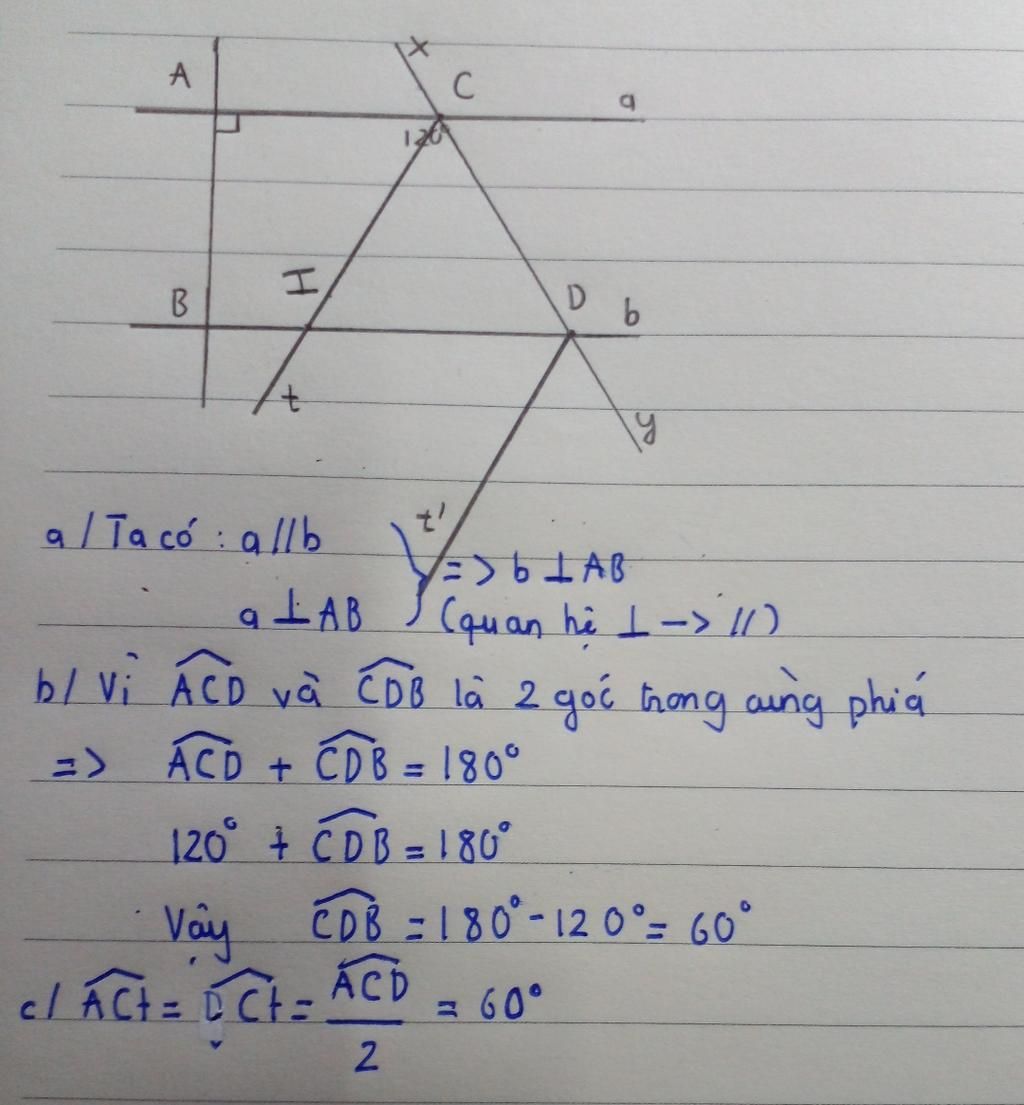 x
A
C
a
120°
I
B
D
b
t
y
t'
a/ Ta có : a//b
=> b ⊥ AB
a ⊥ AB
(quan hệ ⊥ -> //)
b/ Vì \widehat{ACD} và \widehat{CDB} là 2 góc trong cùng phía
=> \widehat{ACD} + \widehat{CDB} = 180°
120° + \widehat{CDB} = 180°
Vậy \widehat{CDB} = 180° - 120° = 60°
c/ \widehat{ACt} = \widehat{DCt} = \frac{\widehat{ACD}}{2} = 60°